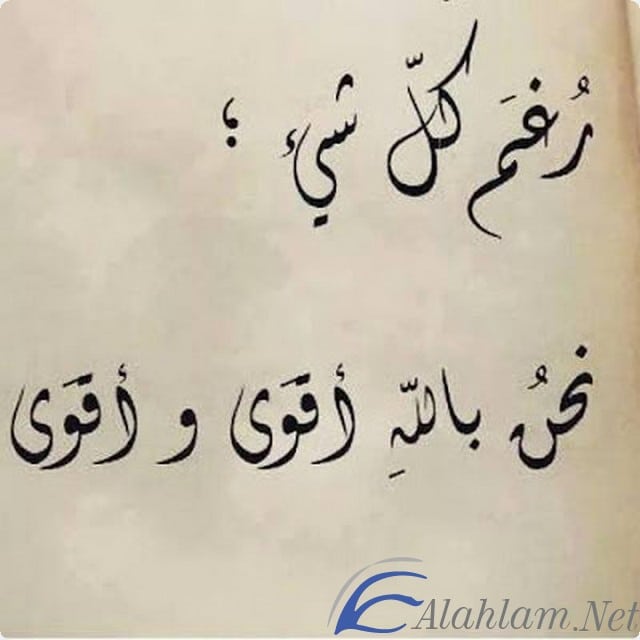 رُغَم كلّ شيء ؛
نحنُ باللّهِ أقوَى و أقوَى
Alahlam.Net